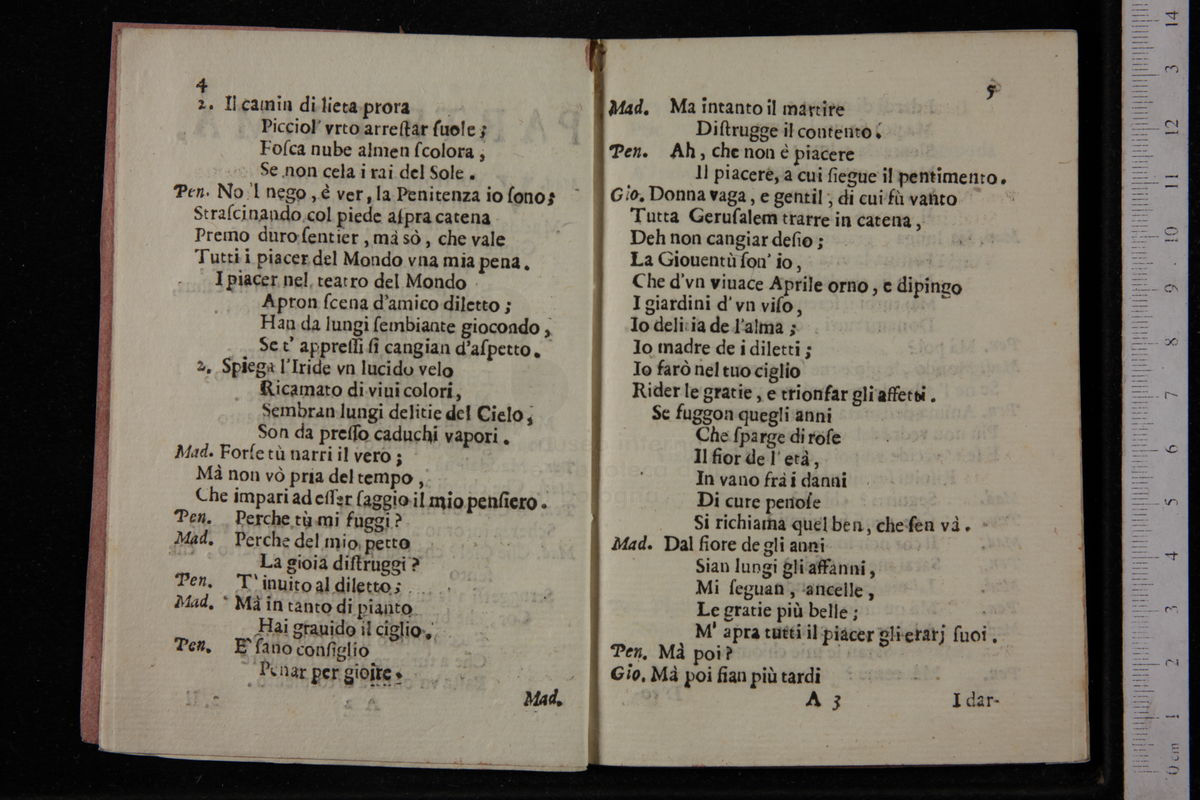 4
2. Il camin di lieta prora
Picciol' vrto arreſtar ſuole;
Foſca nube almen ſcolora,
Se non cela i rai del Sole.
Pen. No 'l nego, è ver, la Penitenza io ſono;
Straſcinando col piede aſpra catena
Premo duro ſentier, mà sò, che vale
Tutti i piacer del Mondo vna mia pena.
I piacer nel teatro del Mondo
Apron ſcena d'amico diletto;
Han da lungi ſembiante giocondo,
Se t' appreſſi ſi cangian d'aſpetto.
2. Spiega l'Iride vn lucido velo
Ricamato di viui colori,
Sembran lungi delitie del Cielo,
Son da preſſo caduchi vapori.
Mad. Forſe tù narri il vero;
Mà non vò pria del tempo,
Che impari ad eſſer ſaggio il mio penſiero.
Pen. Perche tù mi fuggi?
Mad. Perche del mio petto
La gioia diſtruggi?
Pen. T' inuito al diletto;
Mad. Mà in tanto di pianto
Hai grauido il ciglio.
Pen. E' ſano conſiglio
Penar per gioire.
Mad.
5
Mad. Ma intanto il martire
Diſtrugge il contento.
Pen. Ah, che non è piacere
Il piacere, a cui ſiegue il pentimento.
Gio. Donna vaga, e gentil, di cui fù vanto
Tutta Geruſalem trarre in catena,
Deh non cangiar deſio;
La Giouentù ſon' io,
Che d'vn viuace Aprile orno, e dipingo
I giardini d' vn viſo,
Io deli ia de l'alma;
Io madre de i diletti;
Io farò nel tuo ciglio
Rider le gratie, e trionfar gli affetti.
Se fuggon quegli anni
Che ſparge di roſe
Il fior de l' età,
In vano frà i danni
Di cure penoſe
Si richiama quel ben, che ſen và.
Mad. Dal fiore de gli anni
Sian lungi gli affanni,
Mi ſeguan, ancelle,
Le gratie più belle;
M' apra tutti il piacer gli erarj ſuoi.
Pen. Mà poi?
Gio. Mà poi ſian più tardi
A 3
I dar-
14
3
12
11
10
9
8
7
6
5
4
3
2
1
0 cm